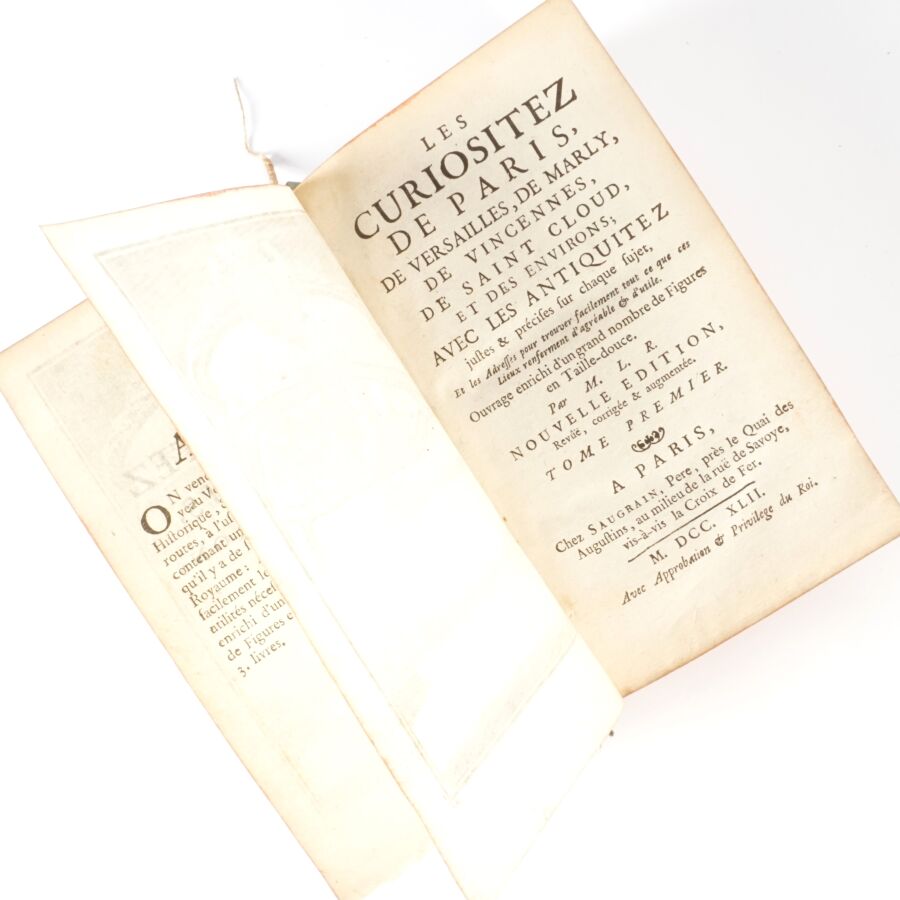 A
ON vend
veau Vo
Historique,
routes, à l'us
contenant un
qu'il y a de
Royaume:
facilement le
utilités néces
enrichi d'un
de Figures e
3. livres.
LES
CURIOSITEZ
DE PARIS,
DE VERSAILLES, DE MARLY,
DE VINCENNES,
DE SAINT CLOUD,
ET DES ENVIRONS;
AVEC LES ANTIQUITEZ
justes & précises sur chaque sujet,
Et les Adresses pour trouver facilement tout ce que ces
Lieux renferment d'agréable & d'utile.
Ouvrage enrichi d'un grand nombre de Figures
en Taille-douce.
Par M. L. R.
NOUVELLE EDITION,
Revûë, corrigée & augmentée.
TOME PREMIER.
A PARIS,
Chez SAUGRAIN, Pere, près le Quai des
Augustins, au milieu de la ruë de Savoye,
vis-à-vis la Croix de Fer.
M. DCC. XLII.
Avec Approbation & Privilege du Roi.